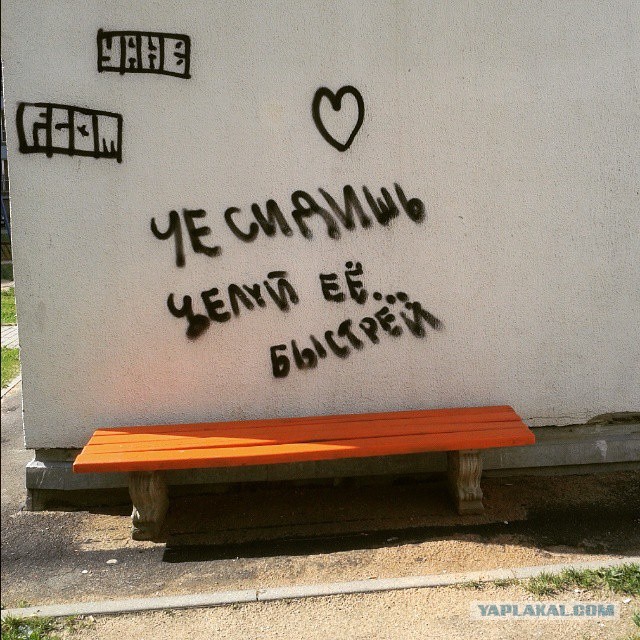 ЧЕ СИДИШЬ
ЦЕЛУЙ ЕЁ...
БЫСТРЕЙ
YAPLAKAL.COM